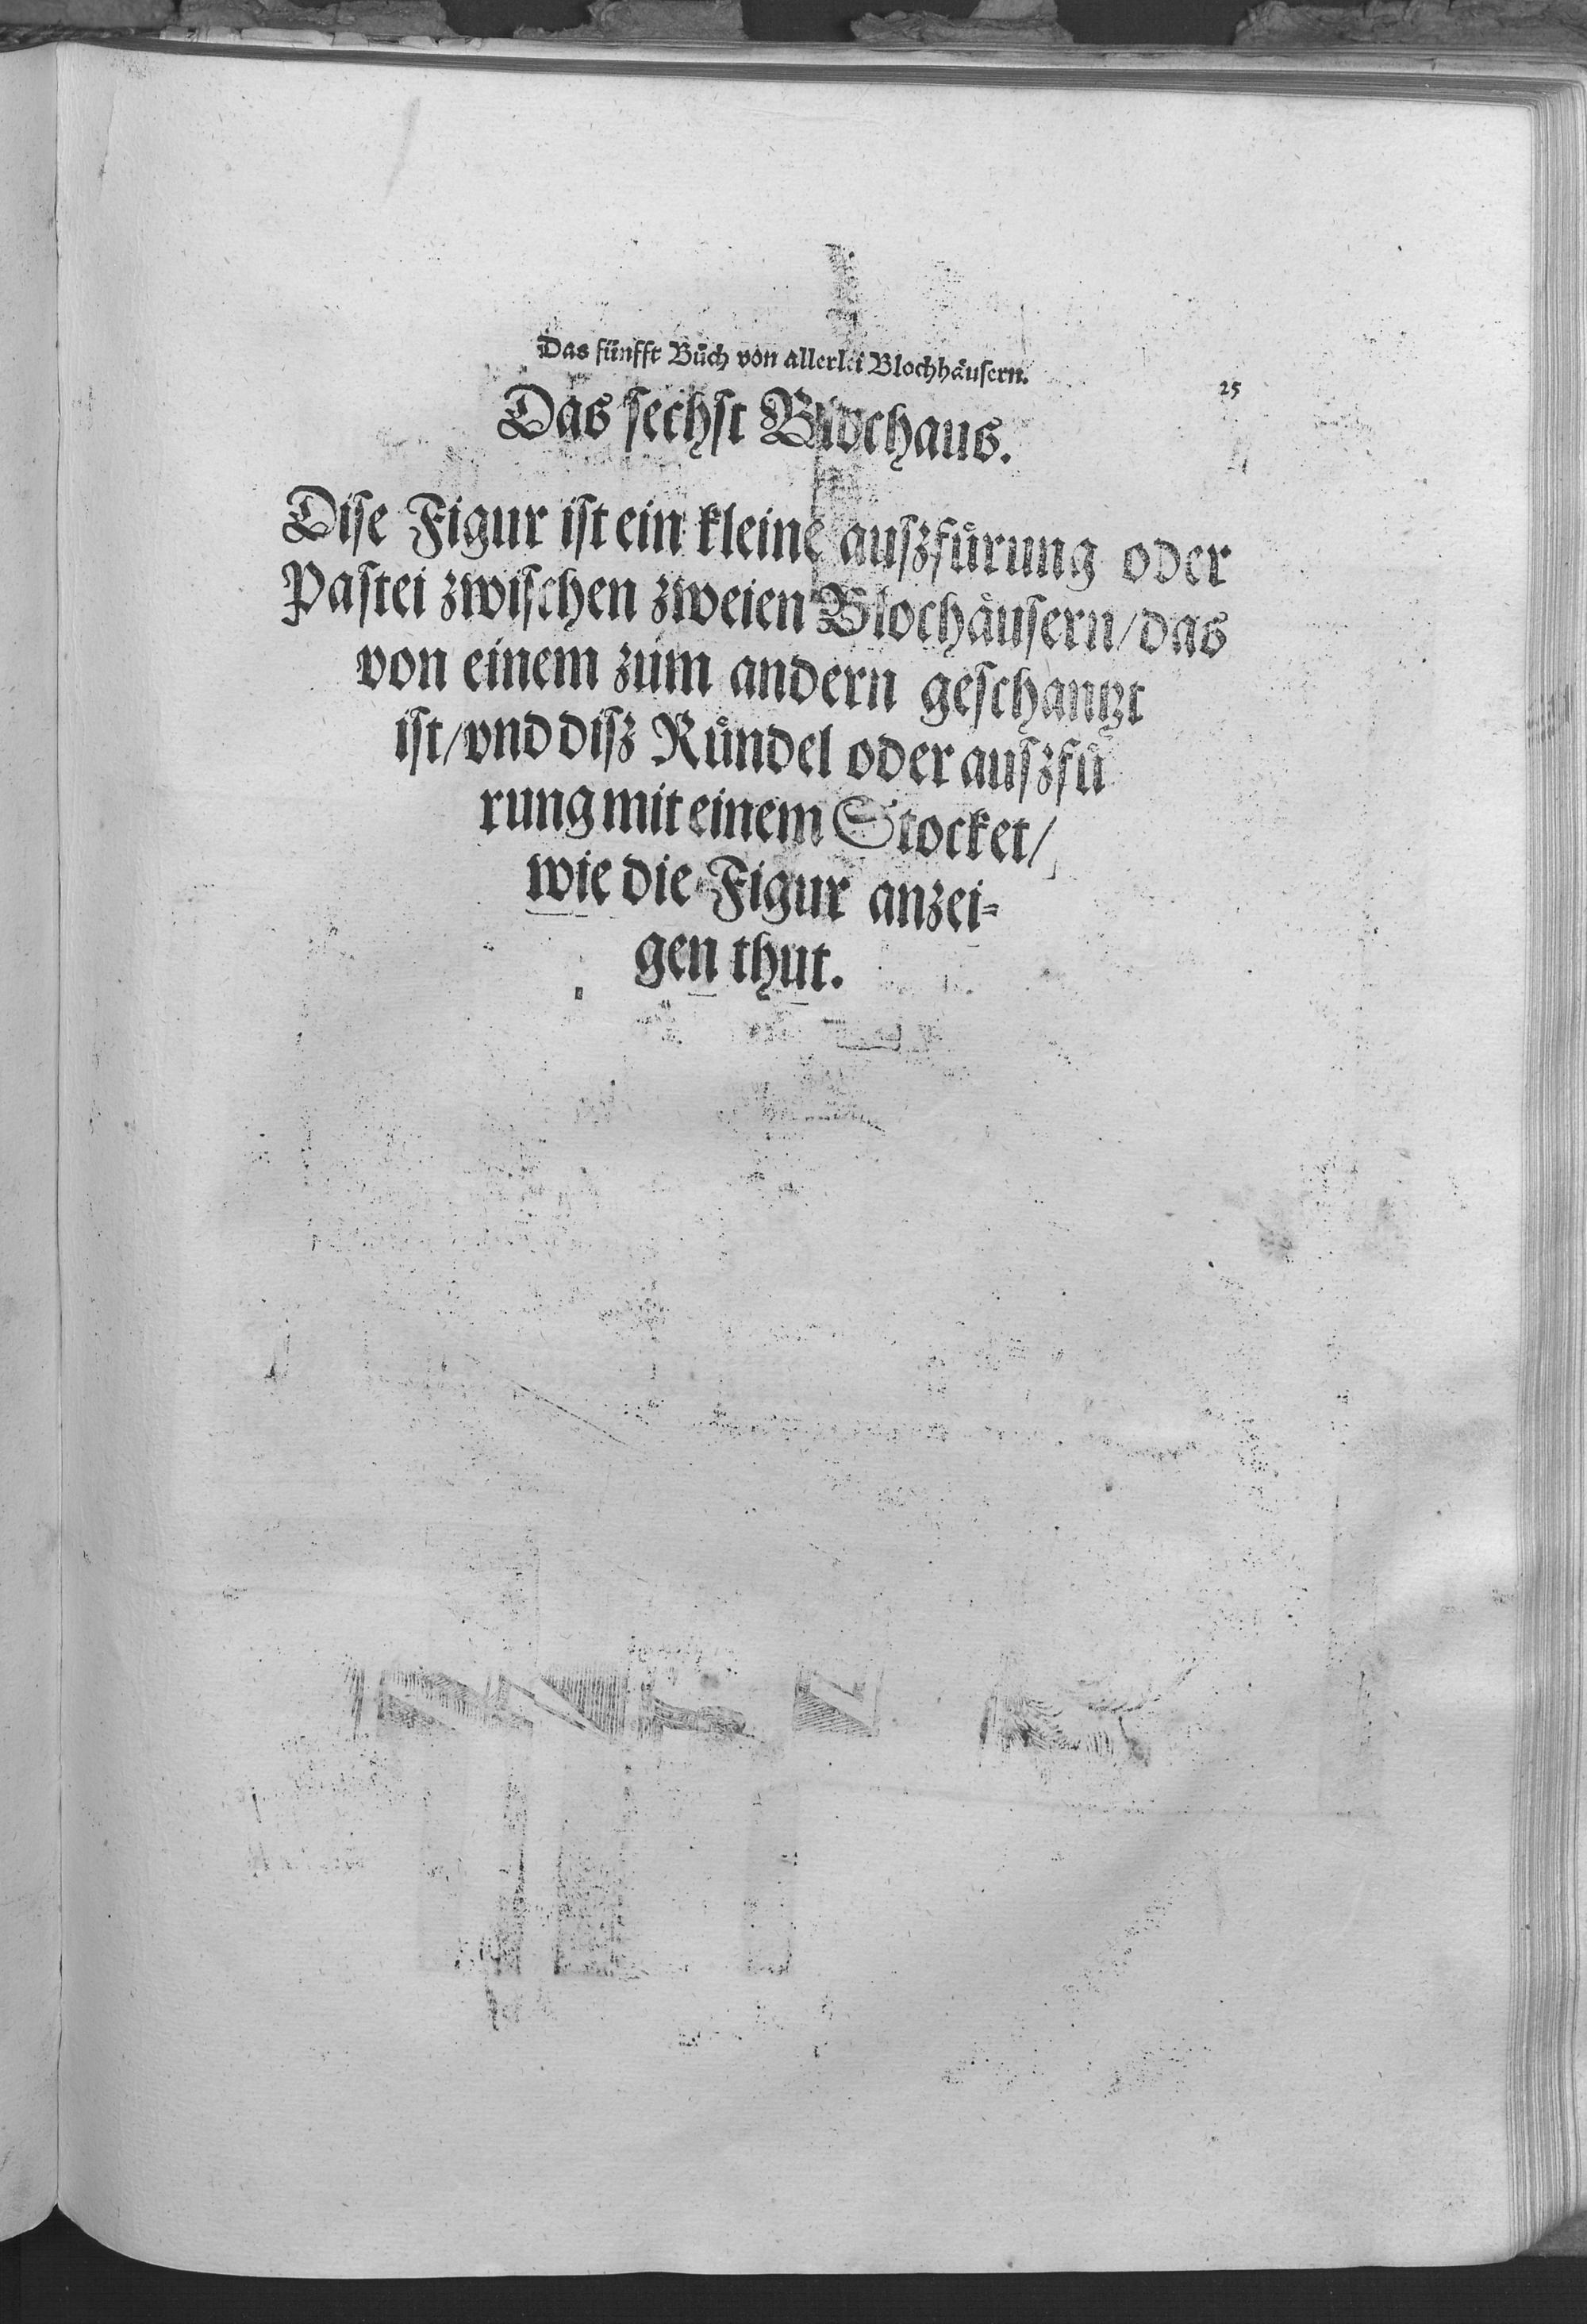 Das fünfft Bůch von allerlei Blochhäusern.
25
Das sechst Blochaus.
Dise Figur ist ein kleine auszfürung oder
Pastei zwischen zweien Blochäusern/das
von einem zum andern geschantzt
ist/vnd disz Ründel oder auszfü
rung mit einem Stocket/
wie die Figur anzei-
gen thut.